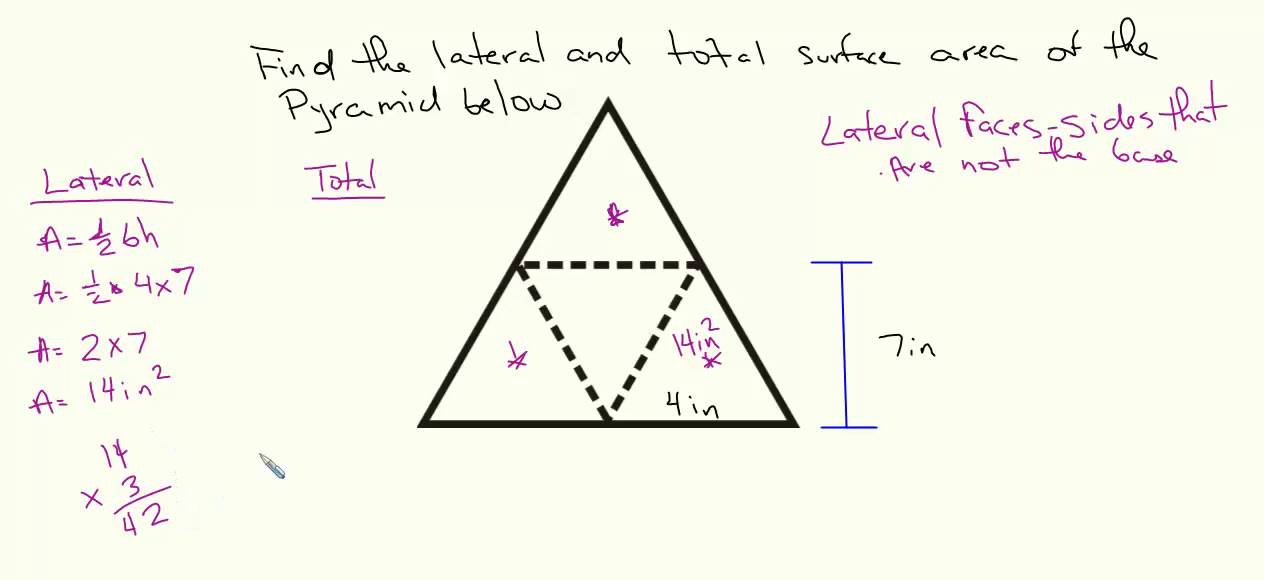 Find the lateral and total surface area of the
Pyramid below
Lateral faces-sides that
Are not the base
Lateral
Total
A=½bh
A=½×4×7
A=2×7
A=14in²
14
×3
42
14in²
4in
7in